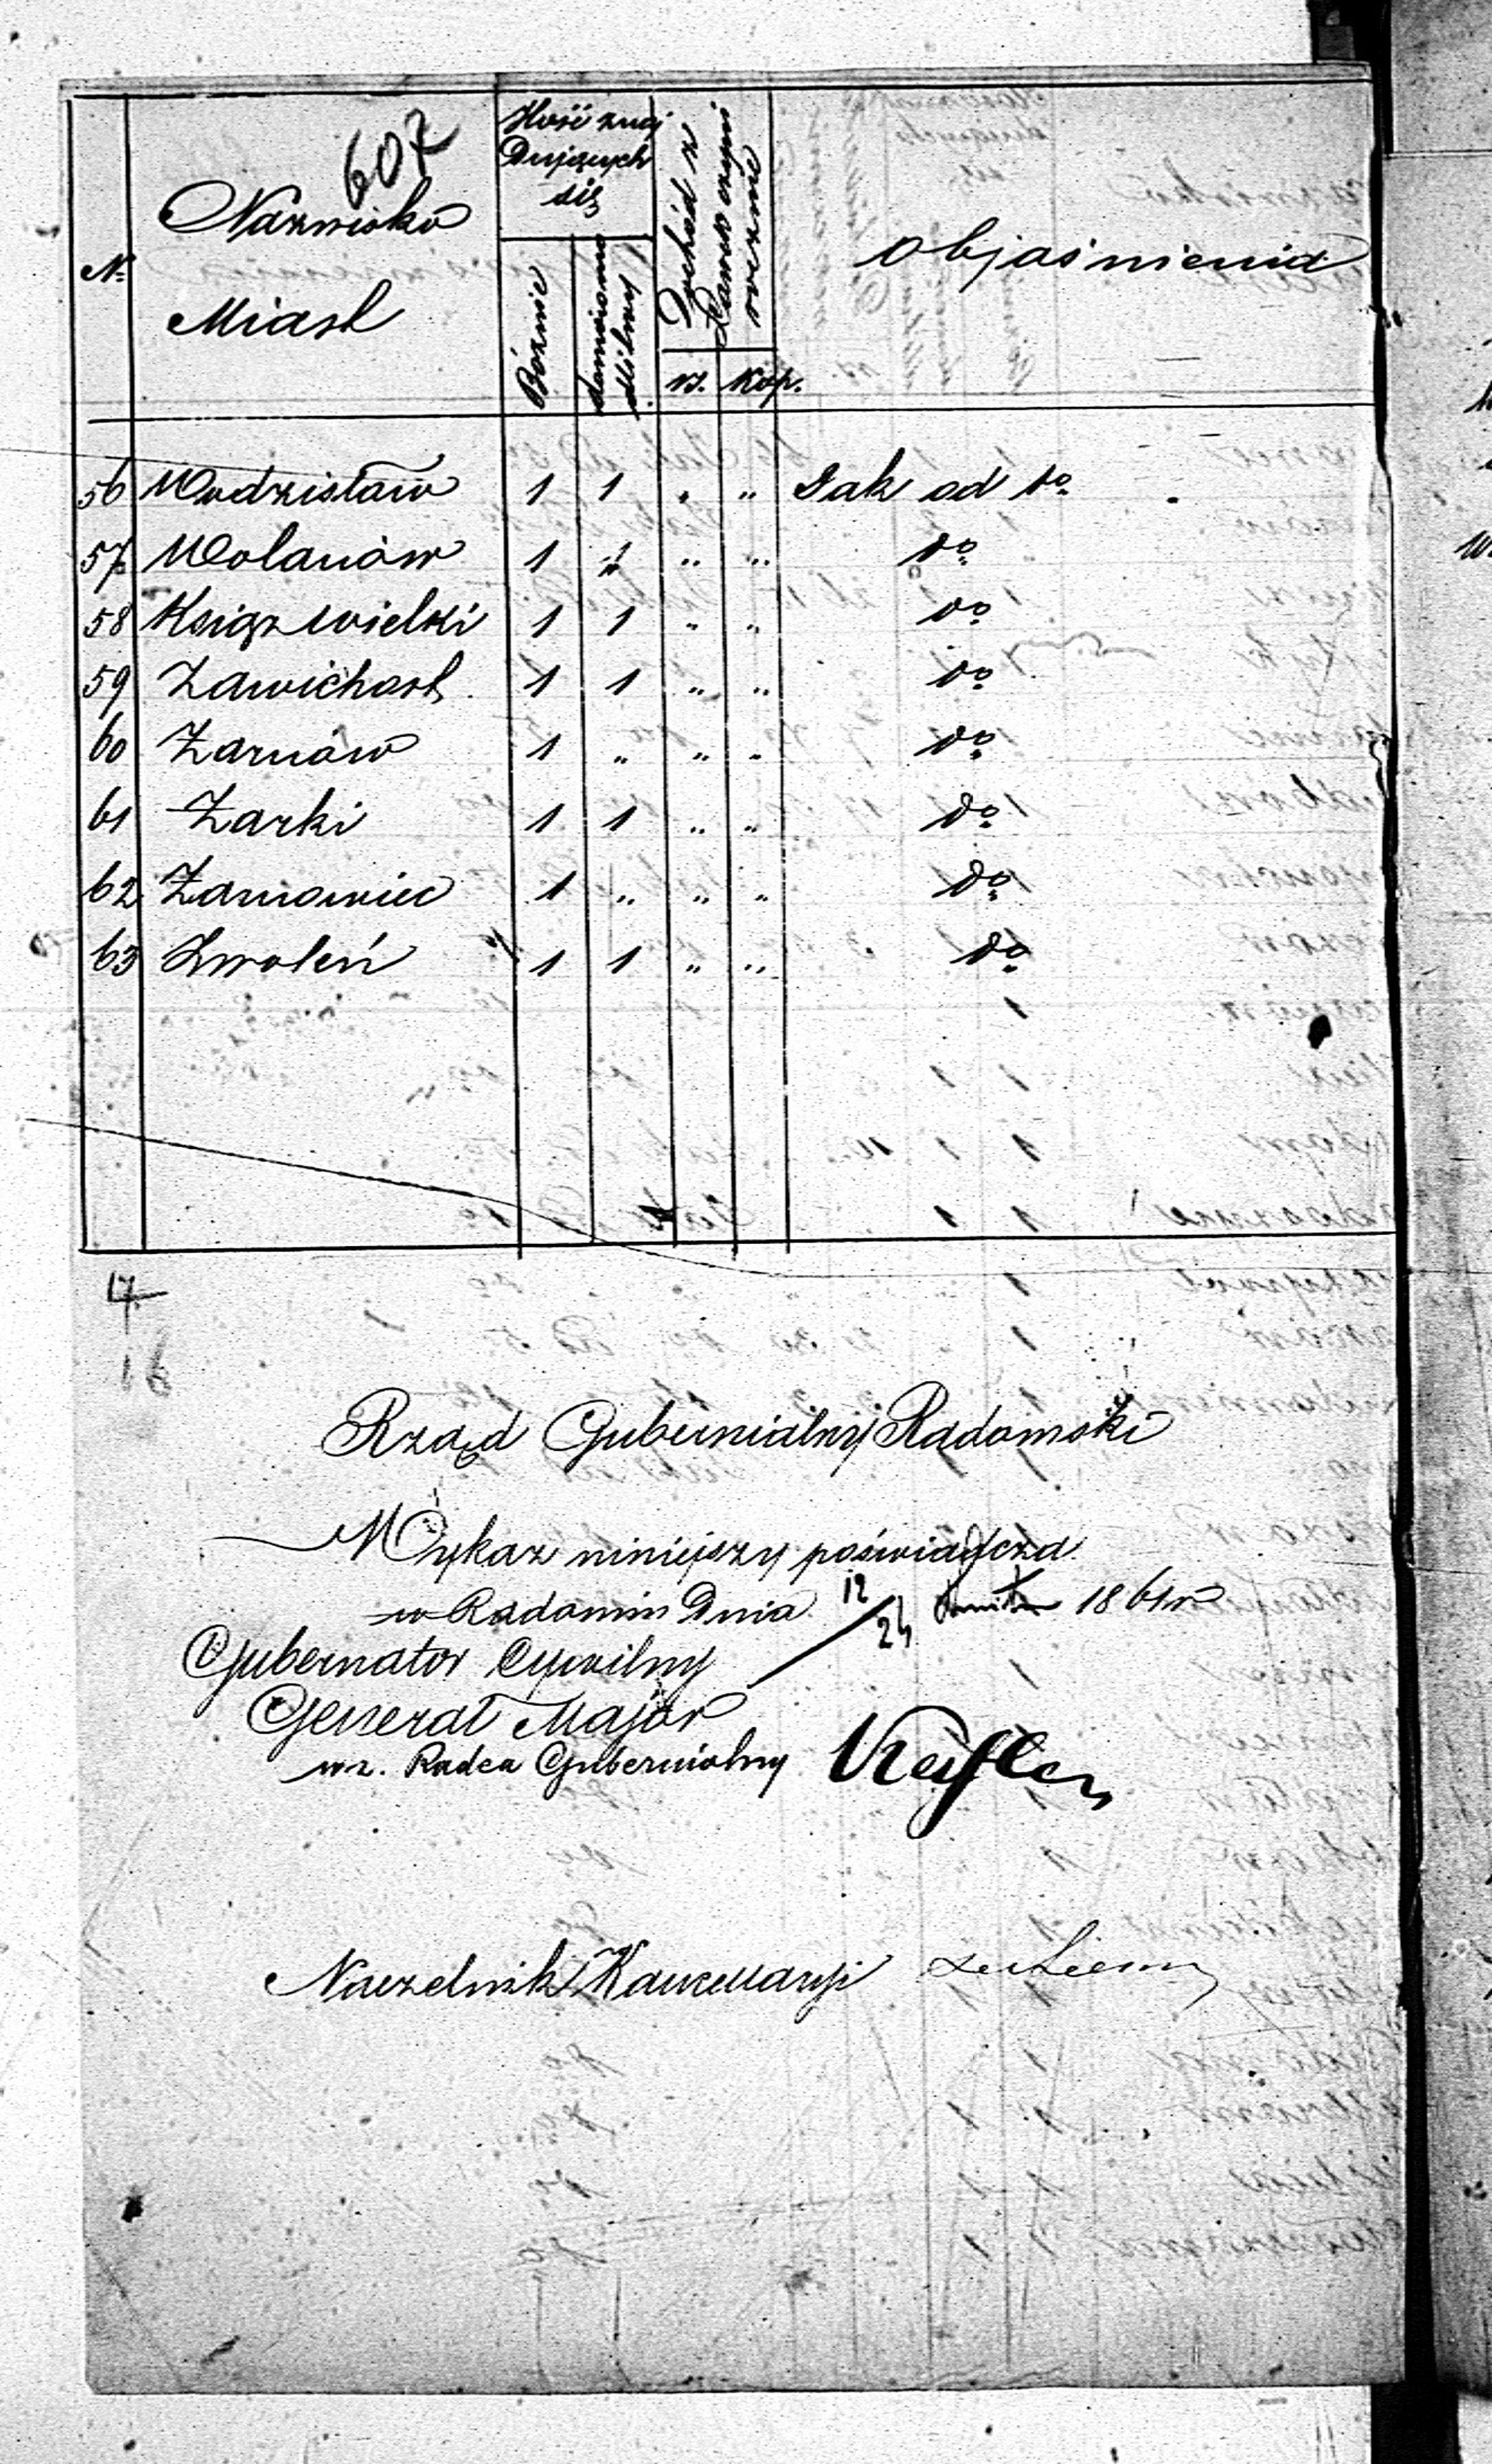 607
Nazwisko
Miast
№
Ilość znaj
dujących
się
Bóżnic
domów modlitwy
Dochód z
rs. kop.
Objaśnienia
56 Wodzisław 1 1 " " Jak od do
57 Wolanów 1 " " do
58 Książ wielki 1 1 " " do
59 Zawichost 1 1 " " do
60 Żarnów 1 " " " do
61 Żarki 1 1 " " do
62 Żarnowiec 1 " " " do
63 Zwoleń 1 1 " " do
17
16
Rząd Gubernialny Radomski
Wykaz niniejszy poświadcza
w Radomiu Dnia 12/24 1861 r
Gubernator Cywilny
Generał Major
wz. Radca Gubernialny
Naczelnik Kancellaryi